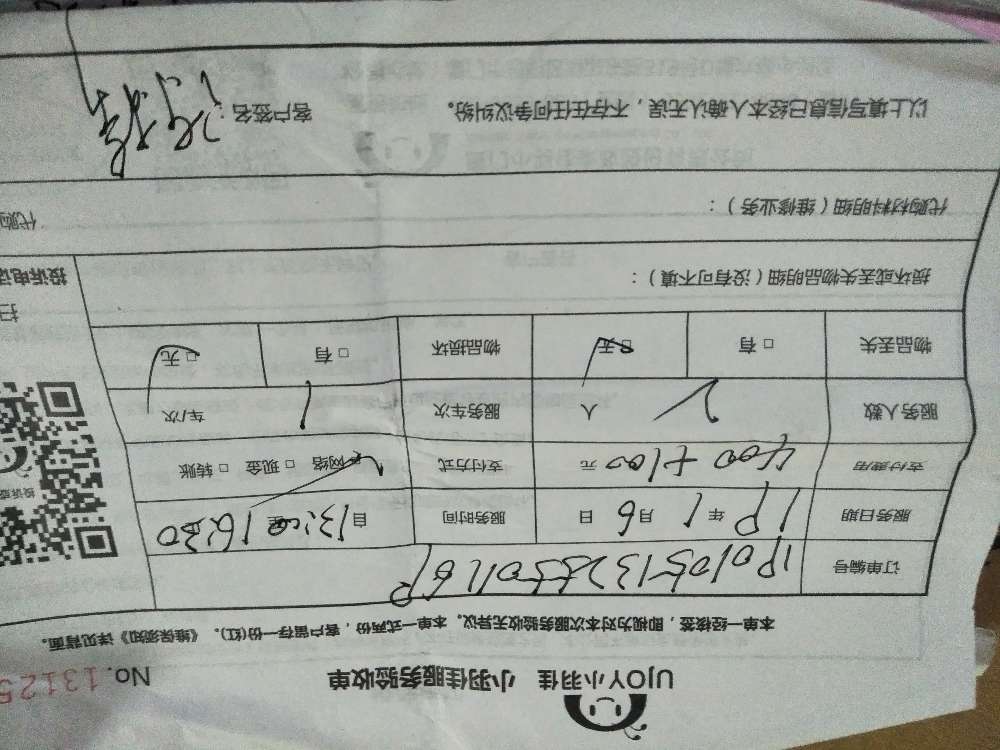 UJOY小羽佳 小羽佳服务验收单
No.13125
本单一经核签，即视为对本次服务验收无异议。本单一式两份，客户留存一份(红)。《维保须知》详见背面。
订单编号
服务日期 19年1月6日 服务时间 自13:00至16:30
支付费用 400+100元 支付方式 □网络 □现金 □转账
服务人数 2人 服务车次 1车/次
物品丢失 □有 □无 物品损坏 □有 □无
损坏或丢失物品明细（没有可不填）：
代购材料明细（维修业务）：
以上填写信息已经本人确认无误，不存在任何争议纠纷。 客户签名：
投诉电话
扫
代购